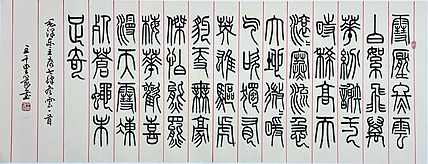 雪壓冬雲
白絮飛萬
華紛謝一
時稀高天
滾滾寒流急
大地微微暖
氣吹獨有
英雄驅虎
豹更無豪
傑怕熊羆
梅華歡喜
漫天雪凍
死蒼蠅未
足奇
毛澤東主席七律冬雲一首